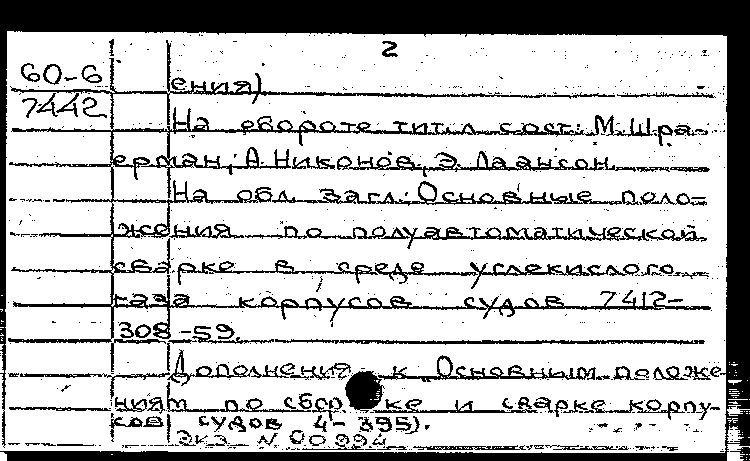 2
60-6
7442
ения)
На обороте тит. л. сост.: М. Шра-
ерман, А. Никонов, Э. Лаансон.
На обл. загл.: Основные поло-
жения по полуавтоматической
сварке в среде углекислого
газа корпусов судов 7412-
308-59.
Дополнения к „Основным положе
ниям по сборке и сварке корпу-
сов судов 4-395).
Экз. N 00994